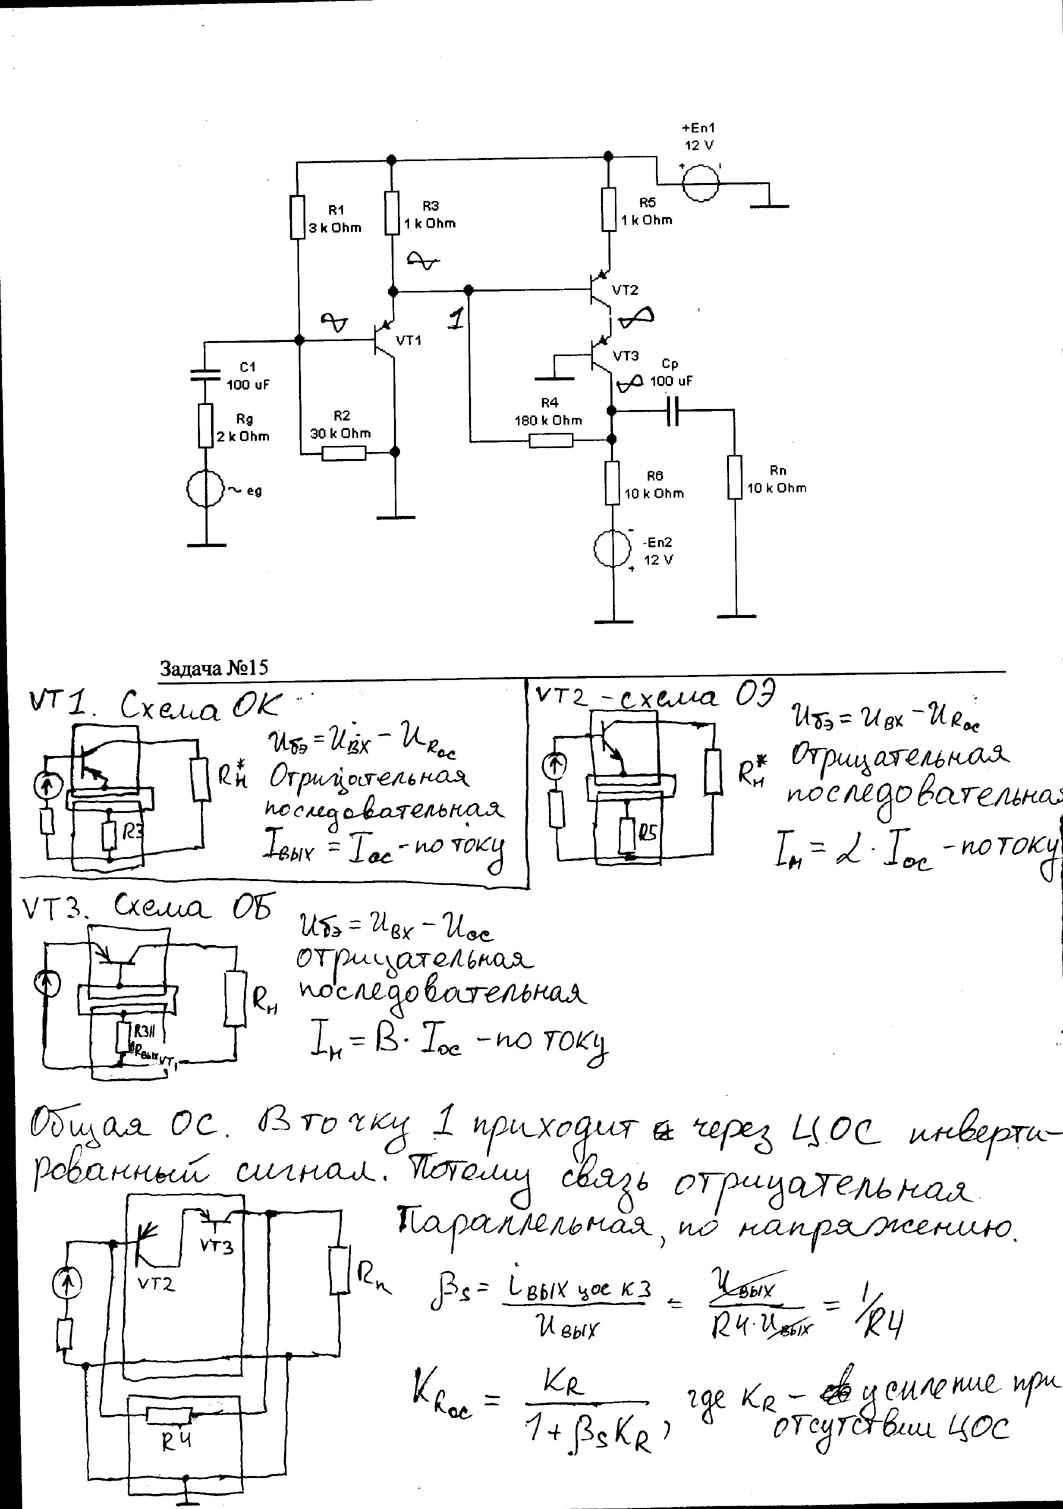 +En1
12 V
R1
3 k Ohm
R3
1 k Ohm
R5
1 k Ohm
VT2
1
VT1
VT3
C1
100 uF
Cp
100 uF
Rg
2 k Ohm
R2
30 k Ohm
R4
180 k Ohm
~ eg
R6
10 k Ohm
Rn
10 k Ohm
-En2
12 V
Задача №15
VT1. Схема ОК
Uбэ = Uвх - URос
Отрицательная
последовательная
Iвых = Iос - по току
Rн*
R3
VT2 - схема ОЭ
Uбэ = Uвх - URос
Отрицательная
последовательная
Iн = α · Iос - по току
Rн*
R5
VT3. Схема ОБ
Uбэ = Uвх - Uос
отрицательная
последовательная
Iн = B · Iос - по току
Rн
R3||
RвыхVT1
Общая ОС. В точку 1 приходит через ЦОС инверти-
рованный сигнал. Потому связь отрицательная
Параллельная, по напряжению.
VT2
VT3
Rn
R4
βs = iвых цос кз / Uвых = Uвых / R4·Uвых = 1/R4
KRос = KR / 1 + βsKR, где KR - усиление при
отсутствии ЦОС